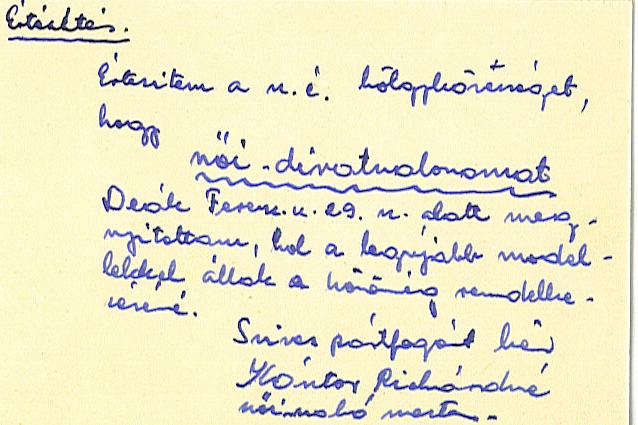 Értesítés.
Értesítem a n. é. hölgyközönséget,
hogy
női-divatszalonomat
Deák Ferenc u. 29. sz. alatt meg-
nyitottam, hol a legújabb model-
lekkel állok a közönség rendelke-
zésére.
Szíves pártfogást kér
Kántor Richárdné
női szabó mester.